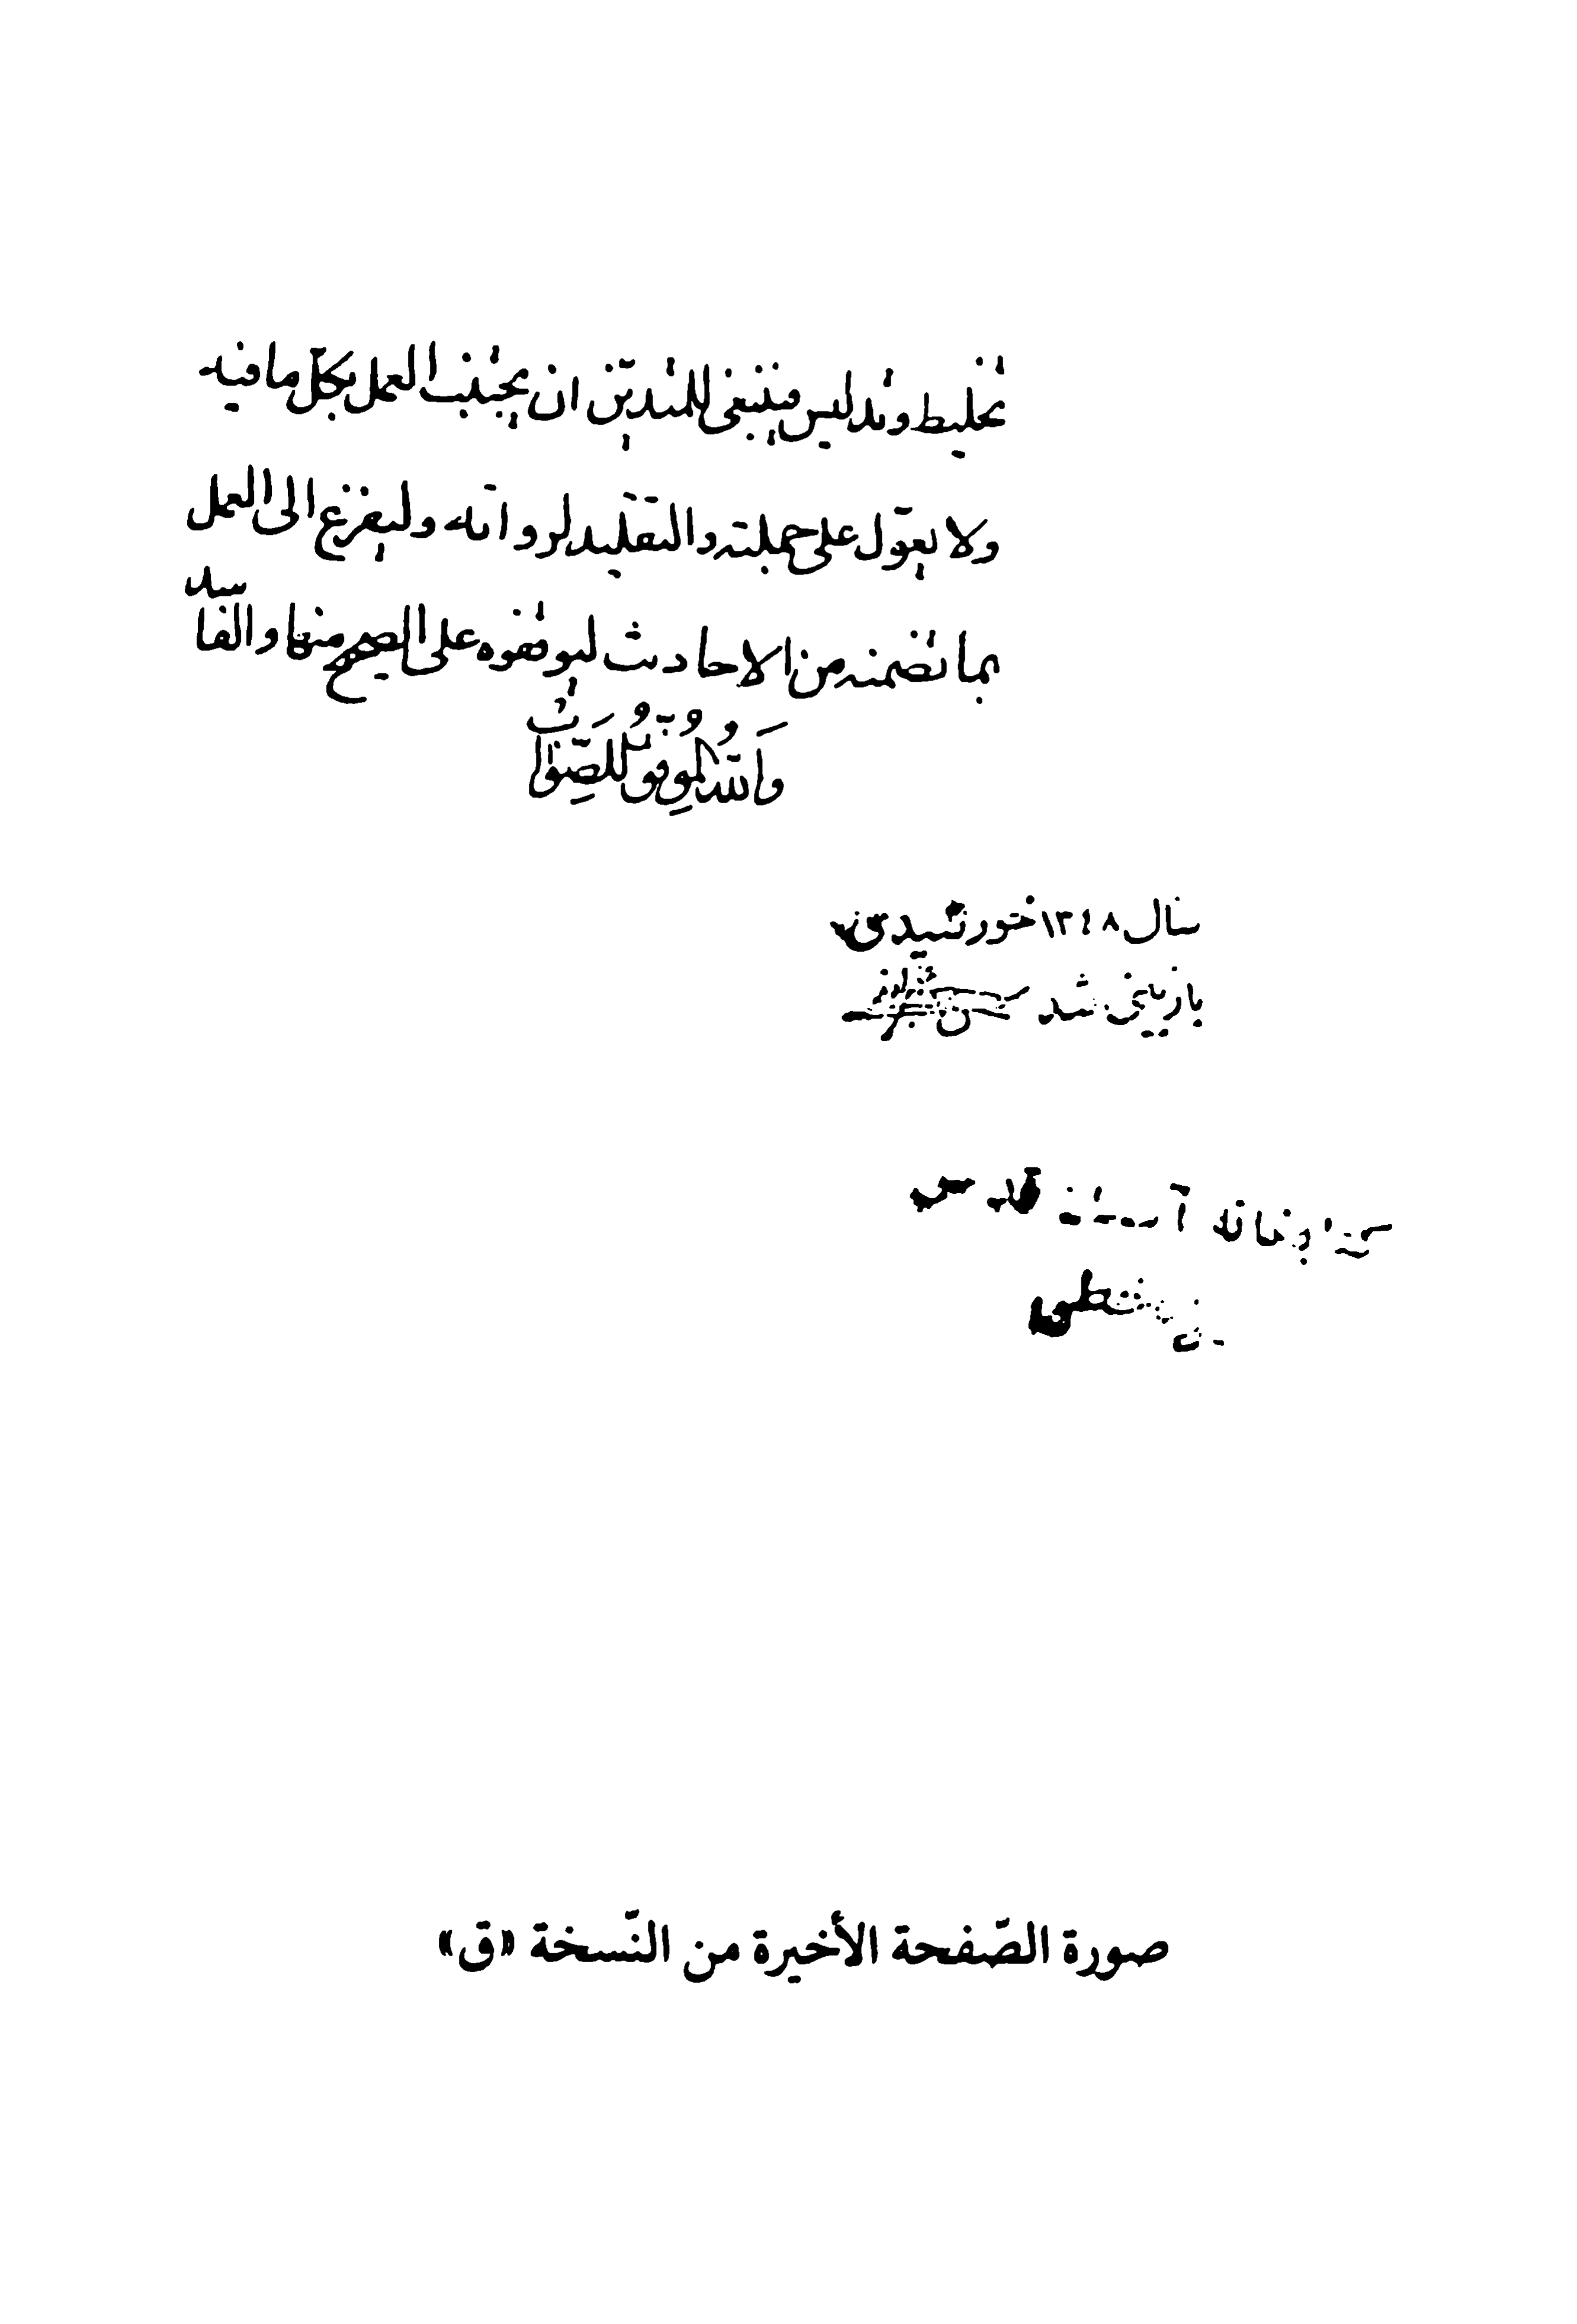 تخليط وتدليس فينبغي للمتدين ان يجتنب العمل بكل ما فيه
ولا يعوّل على جملته والتقليد لرواته وليفزع الى العلماء
بما تضمنه من الاحاديث ليوقفوه على الصحيح منها والفاسد
وَاللهُ الْمُوَفِّقُ لِلصَّوَابِ
سال ۱۳۴۸ خورشیدی
بازبینی شد
کتابخانه آستان قدس
صورة الصّفحة الأخيرة من النّسخة «ق»